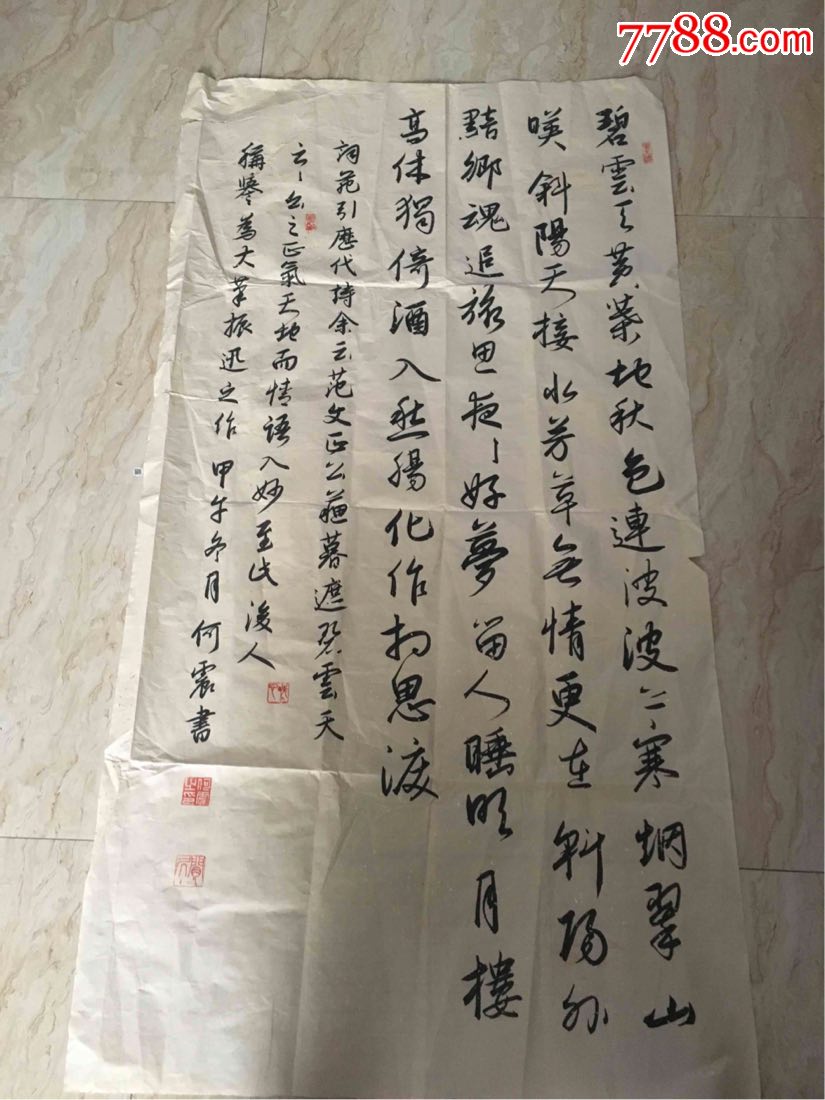 7788.com
碧雲天黄葉地秋色連波波上寒烟翠山
暎斜陽天接水芳草無情更在斜陽外
黯鄉魂追旅思夜〻好夢留人睡明月樓
高休獨倚酒入愁腸化作相思淚
詞苑引歷代詩余云范文正公蘇幕遮碧雲天
云〻公之正氣天地而情語入妙至此後人
稱舉為大筆振迅之作 甲午冬月何震書
何震之印